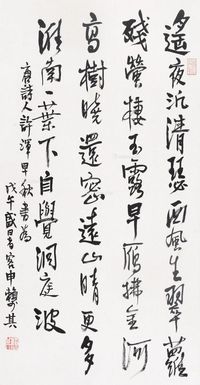 遥夜汎清瑟西风生翠萝
残萤栖玉露早雁拂金河
高樹曉還密遠山晴更多
淮南一葉下自覺洞庭波
唐詩人許渾早秋書為
戊午盛暑客申